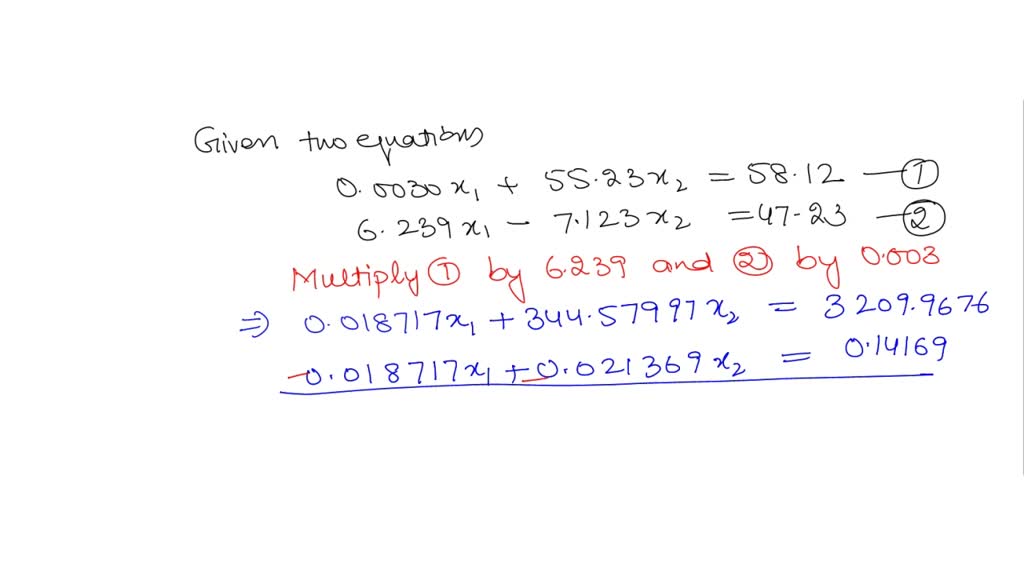 Given two equations
0.0030x₁ + 55.23x₂ = 58.12 — ①
6.239x₁ - 7.123x₂ = 47.23 — ②
Multiply ① by 6.239 and ② by 0.003
⇒ 0.018717x₁ + 344.57997x₂ = 3209.9676
-0.018717x₁ + 0.021369x₂ = 0.14169